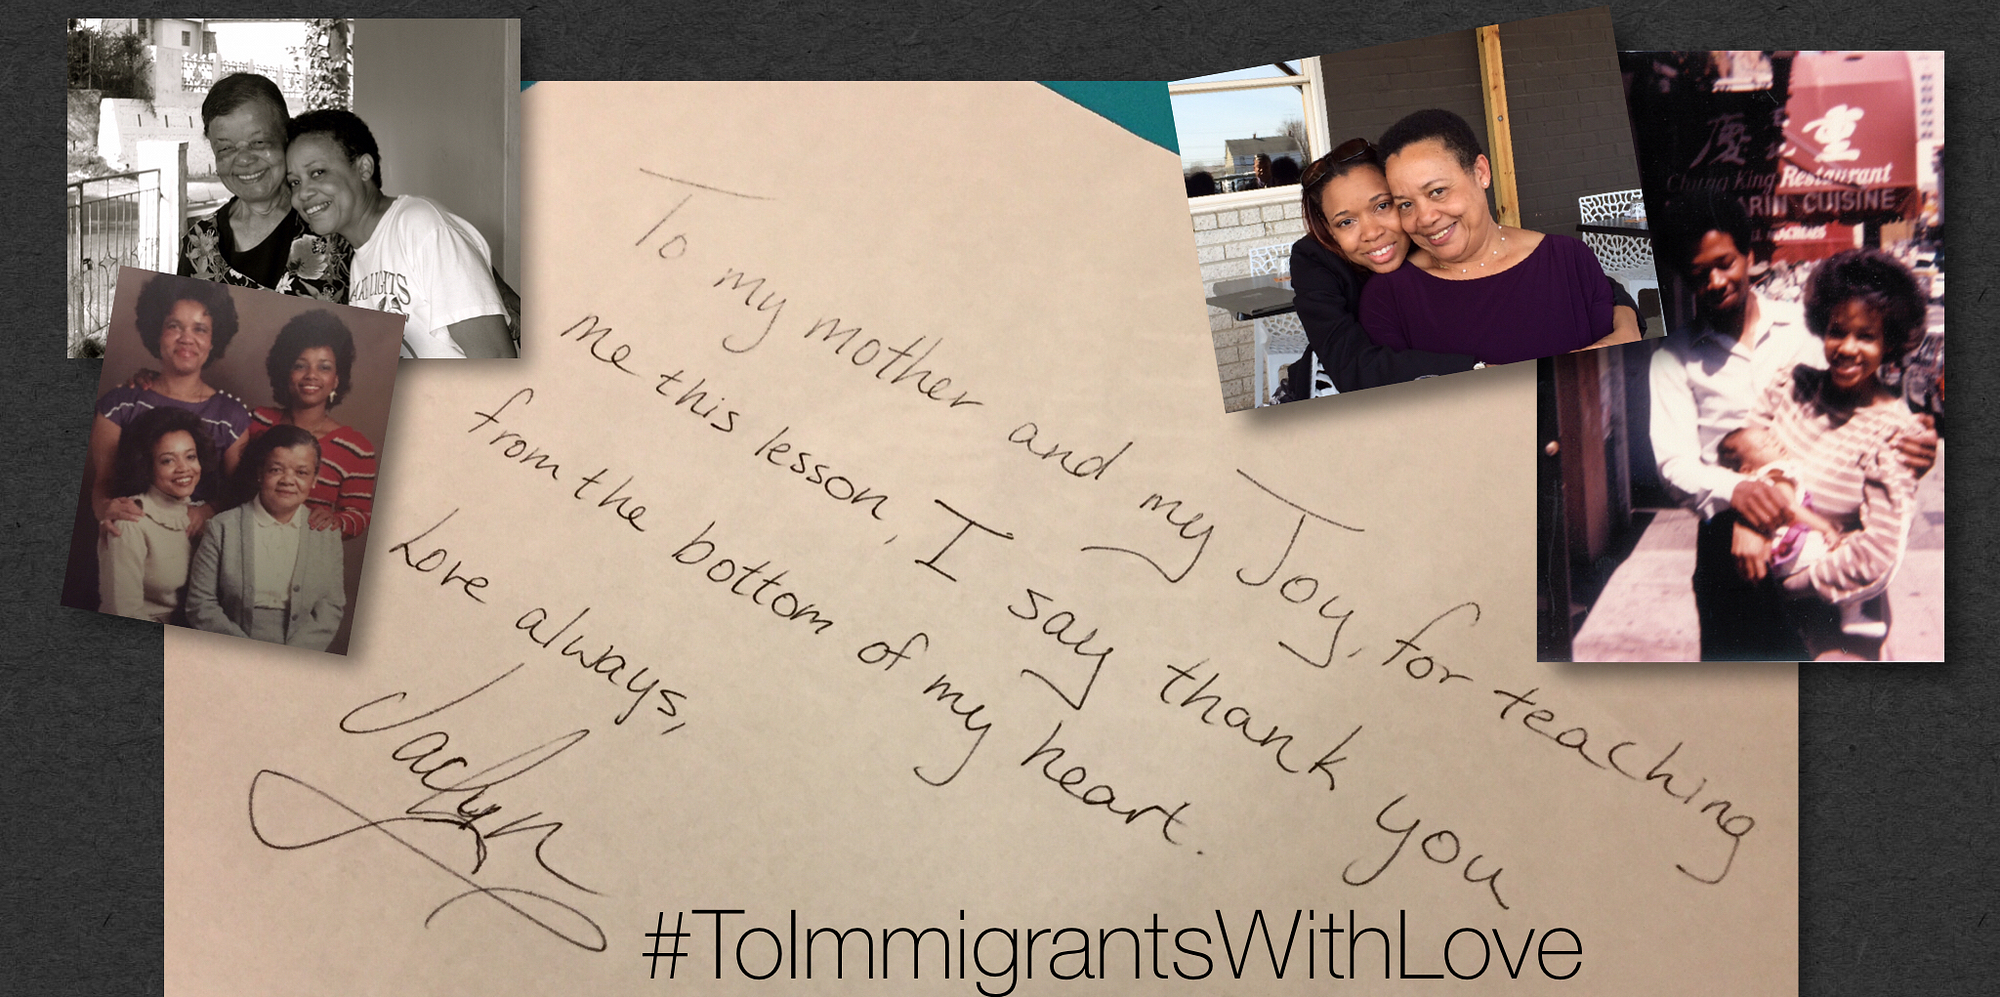 To my mother and my Joy, for teaching
me this lesson, I say thank you
from the bottom of my heart.
Love always,
Jaclyn
#ToImmigrantsWithLove
重慶
Chung King Restaurant
CUISINE
LIGHTS